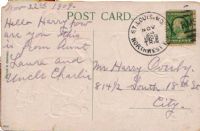 Nov 22nd 1909.
POST CARD.
Hello Harry how
are you this
is from Aunt
Laura and
Uncle Charlie
ST. LOUIS, MO.
NOV
NORTHWEST
Mr Harry
South 18th St
City.